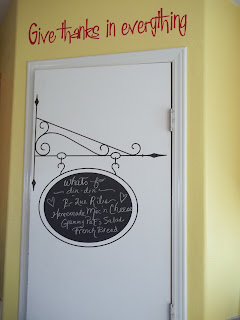 Give thanks in everything
What's-fo
din-din
B-Que Ribs
Homemade Mac n Cheese
Grammy Salad
French Bread